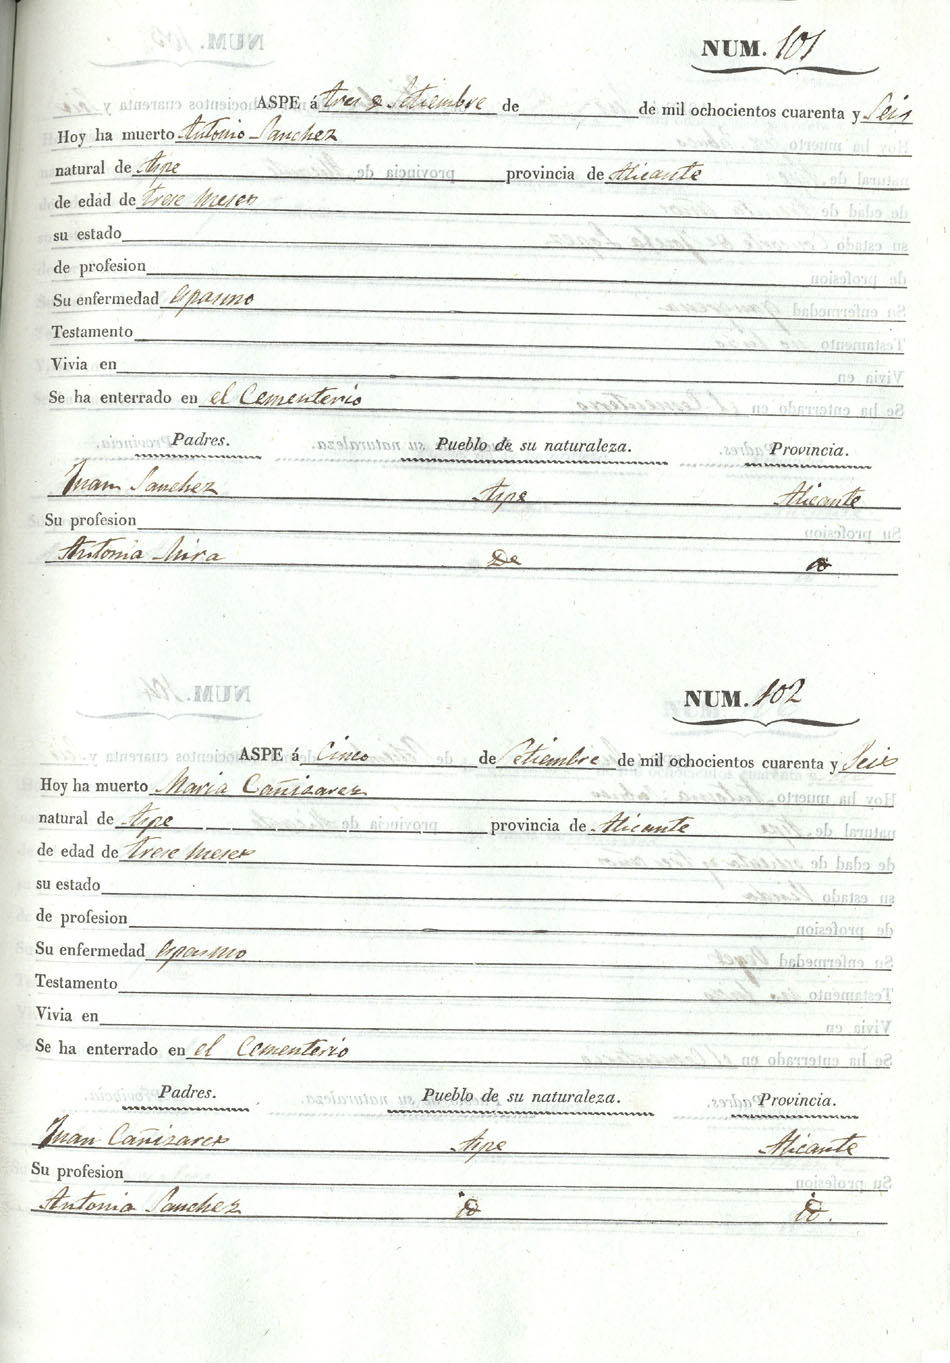 NUM. 101
ASPE á tres de Setiembre de de mil ochocientos cuarenta y Seis
Hoy ha muerto Antonio Sanchez
natural de Aspe provincia de Alicante
de edad de trese meses
su estado
de profesion
Su enfermedad espasmo
Testamento
Vivia en
Se ha enterrado en el Cementerio
Padres. Pueblo de su naturaleza. Provincia.
Juan Sanchez Aspe Alicante
Su profesion
Antonia Mira
NUM. 102
ASPE á Cinco de Setiembre de mil ochocientos cuarenta y Seis
Hoy ha muerto Maria Cañizares
natural de Aspe provincia de Alicante
de edad de trese meses
su estado
de profesion
Su enfermedad espasmo
Testamento
Vivia en
Se ha enterrado en el Cementerio
Padres. Pueblo de su naturaleza. Provincia.
Juan Cañizares Aspe Alicante
Su profesion
Antonia Sanchez id id.